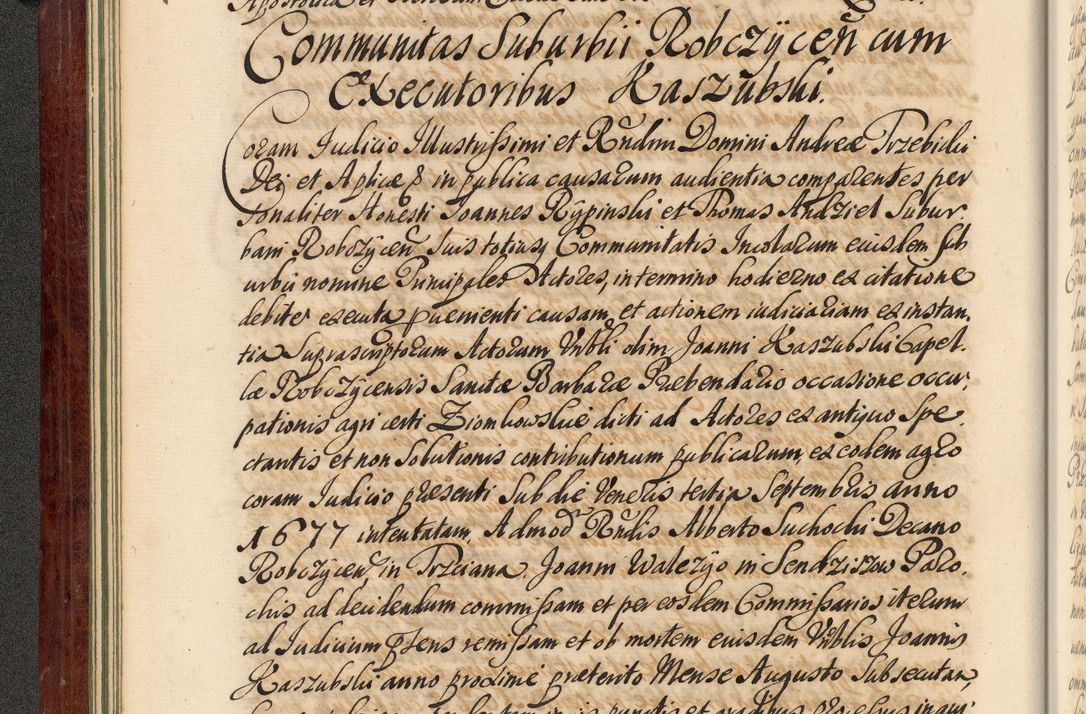 Communitas Suburbii Robczÿcen̄ cum
Executoribus Kaszubski.
Coram Judicio Illustrissimi et Rn̄dim Domini Andreæ Trzebicki
Dei et Aplicæ & in publica causarum audientia comparentes per
sonaliter Honesti Joannes Rÿpinski et Thomas Andziel Subur.
bani Robczÿcen̄ suis totiusq Communitatis Incolarum eiusdem sub
urbii nomine Principales Actores, in termino hodierno ex citatione
debite executa praementi causam, et actionem iudiciariam ex instan.
tia Suprascriptorum Actorum Vrbli olim Joanni Kaszubski Capel.
læ Robczÿcensis Sanctæ Barbaræ Præbendario occasione occu,
pationis agri certi Ziomkowskie dicti ad Actores ex antiquo Spe.
ctantis et non Solutionis contributionum publicarum, ex eodem agro
coram Judicio præsenti Sub die Veneris tertia Septembris anno
1677 intentatam, Admod Rn̄dis Alberto Suchocki Decano
Robczÿcen, in Trzciana. Joanni Walezÿo in Sendziszow Paro.
chis ad decidendum commissam et per eosdem Commissarios iterum
ad Judicium pnsens remissam et ob mortem eiusdem Vrblis Joannis
Kaszubski anno proxime præterito Mense Augusto Subsecutan,